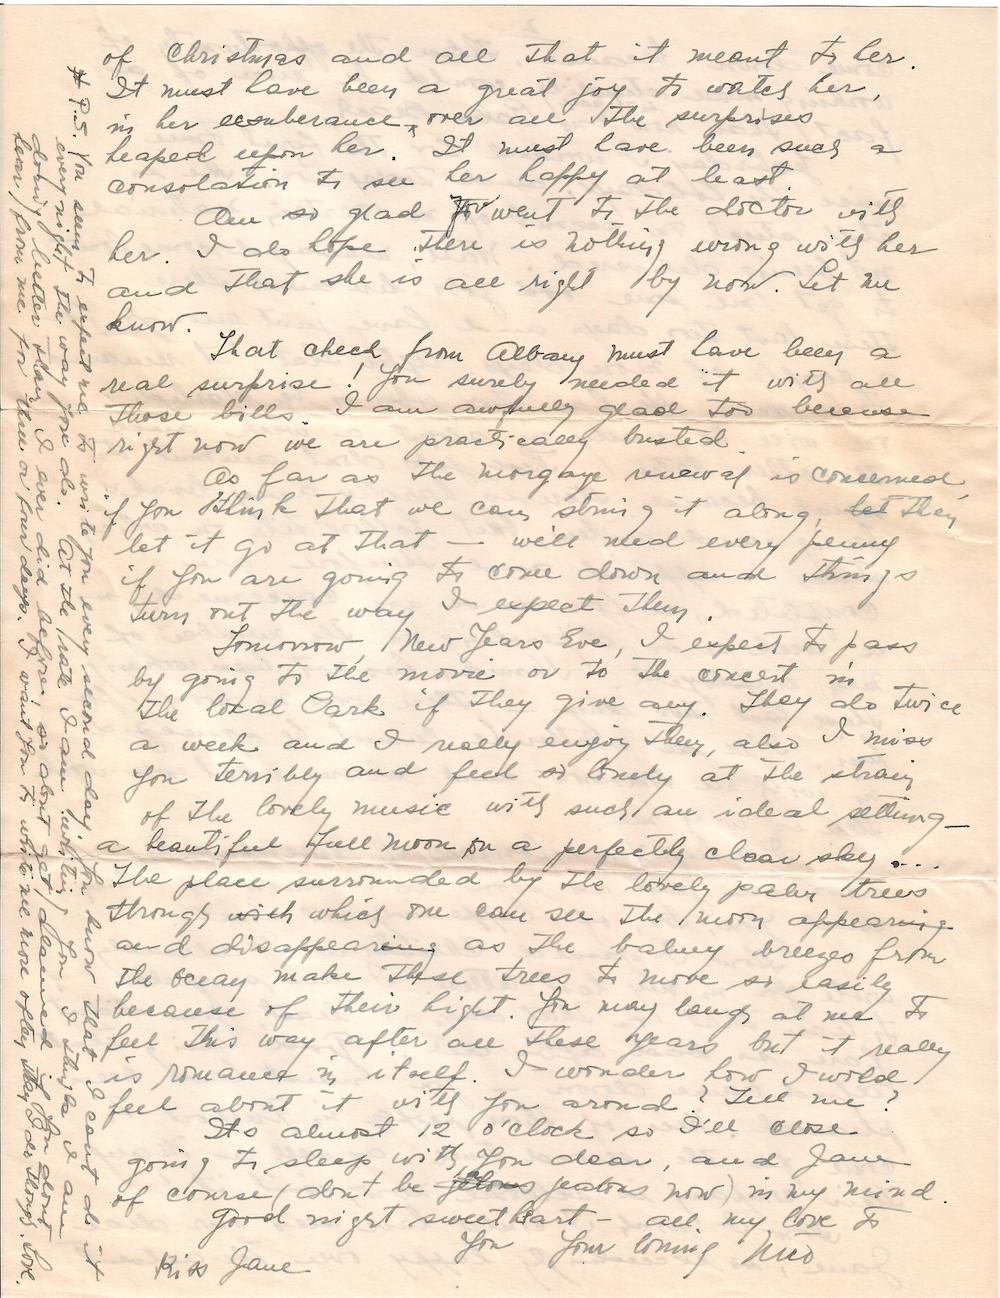 of Christmas and all that it meant to her.
It must have been a great joy to watch her,
in her exsuberance, over all the surprises
heaped upon her. It must have been such a
consolation to see her happy at least.
Am so glad you went to the doctor with
her. I do hope there is nothing wrong with her
and that she is all right by now. Let me
know.
That check from Albany must have been a
real surprise! You surely needed it with all
those bills. I am awfully glad too because
right now we are practically busted.
As far as the morgage renewal is concerned,
if you think that we can string it along, let then
let it go at that — we'll need every penny
if you are going to come down and things
turn out the way I expect them.
Tomorrow, New Years Eve, I expect to pass
by going to the movie or to the concert in
the local Park if they give any. They do twice
a week and I really enjoy them, also I miss
you terribly and feel so lonely at the strain
of the lovely music with such an ideal setting—
a beautiful full moon, on a perfectly clear sky....
The place surrounded by the lovely palm trees
through wich which one can see the moon appearing
and disappearing as the balmy breezes from
the ocean make these trees to move so easily
because of their hight. You may laugh at me to
feel this way after all these years but it really
is romance in itself. I wonder how I wold
feel about it with you arond? Tell me?
It's almost 12 o'clock so I'll close
going to sleep with you dear, and Jane
of course (dont be jelous jealous now) in my mind.
Good night sweetheart — all my love to
you Your loving Nico
Kiss Jane
# P.S. You seem to expect me to write you every second day. You know that I cant do it
every night the way you do. At the rate I am writing you I think I am
doing better than I ever did before, so dont get dissapointed if you dont
hear from me for three or four days. I want you to write me more often than I do though. Love.